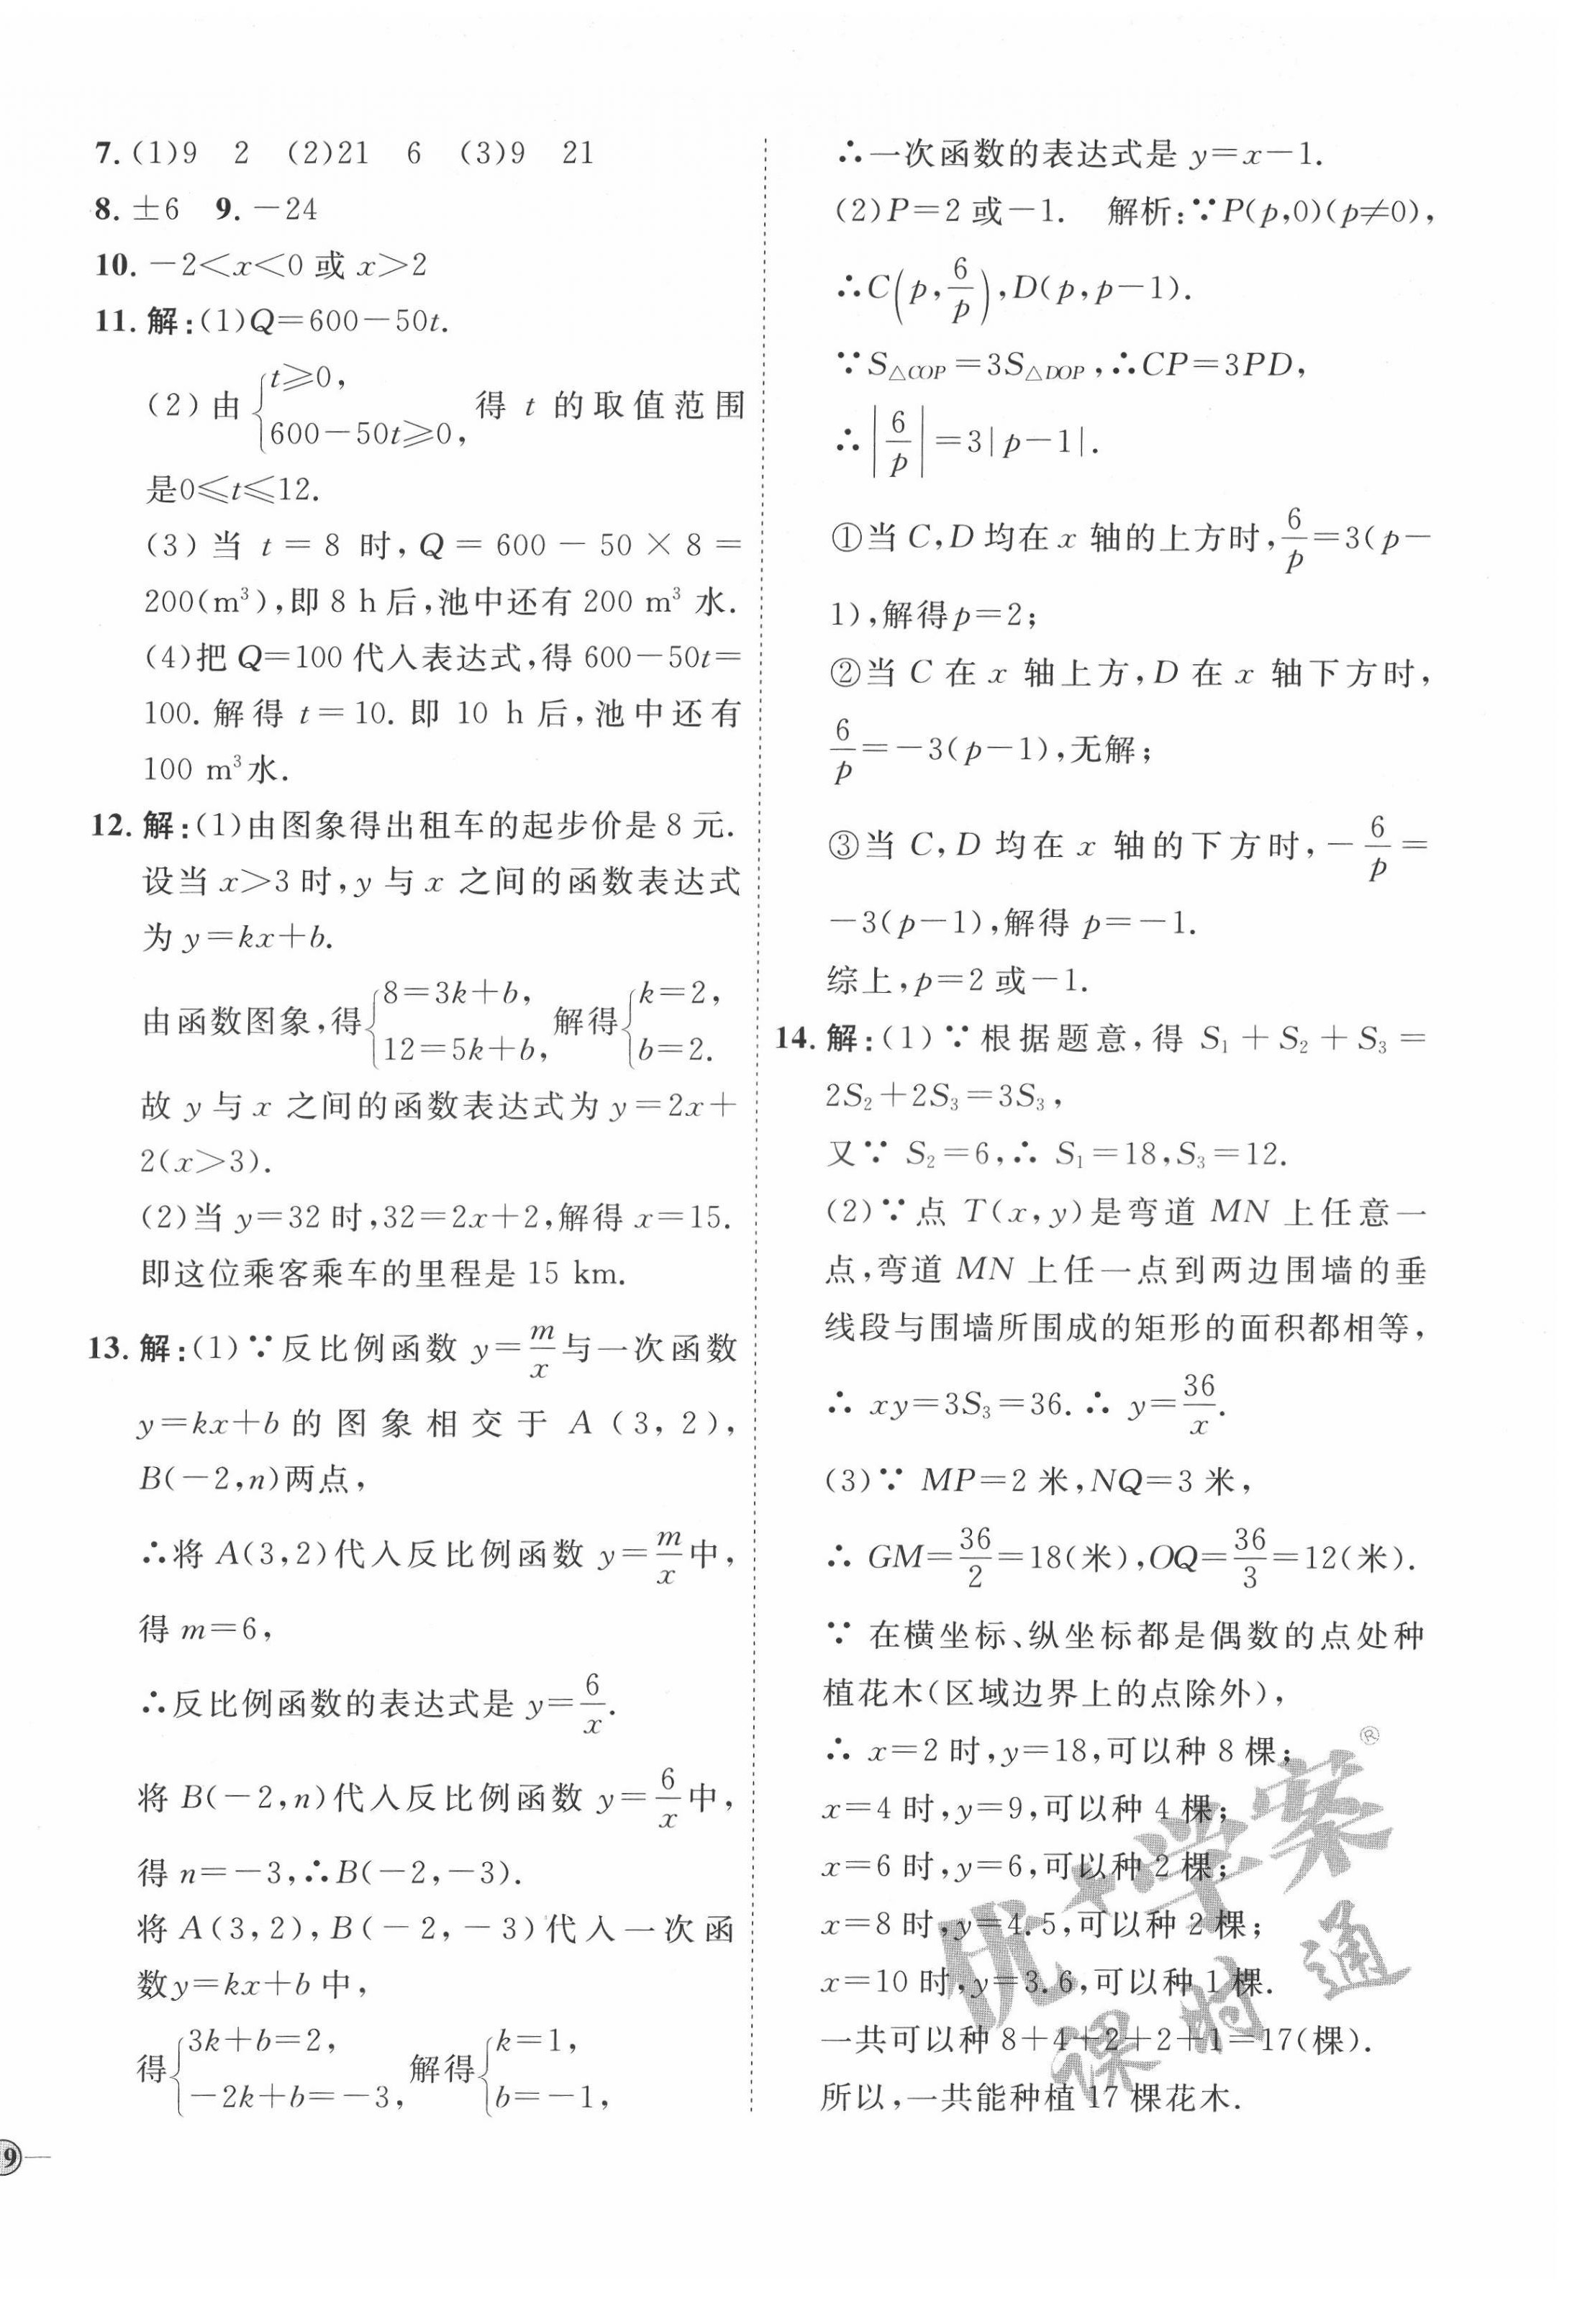 7. (1)9 2 (2)21 6 (3)9 21
8. ±6 9. －24
10. －2＜x＜0 或 x＞2
11. 解:(1)Q＝600－50t.
(2)由{t≥0, 600－50t≥0, 得 t 的取值范围
是0≤t≤12.
(3)当 t＝8 时,Q＝600－50×8＝
200(m³),即 8 h 后,池中还有 200 m³ 水.
(4)把 Q＝100 代入表达式,得 600－50t＝
100. 解得 t＝10. 即 10 h 后,池中还有
100 m³水.
12. 解:(1)由图象得出租车的起步价是 8 元.
设当 x＞3 时,y 与 x 之间的函数表达式
为 y＝kx＋b.
由函数图象,得{8＝3k＋b, 12＝5k＋b, 解得{k＝2, b＝2.
故 y 与 x 之间的函数表达式为 y＝2x＋
2(x＞3).
(2)当 y＝32 时,32＝2x＋2,解得 x＝15.
即这位乘客乘车的里程是 15 km.
13. 解:(1)∵反比例函数 y＝m/x与一次函数
y＝kx＋b 的图象相交于 A(3,2),
B(－2,n)两点,
∴将 A(3,2)代入反比例函数 y＝m/x中,
得 m＝6,
∴反比例函数的表达式是 y＝6/x.
将 B(－2,n)代入反比例函数 y＝6/x中,
得 n＝－3,∴B(－2,－3).
将 A(3,2),B(－2,－3)代入一次函
数y＝kx＋b 中,
得{3k＋b＝2, －2k＋b＝－3, 解得{k＝1, b＝－1,
9
∴一次函数的表达式是 y＝x－1.
(2)P＝2 或－1. 解析:∵P(p,0)(p≠0),
∴C(p,6/p),D(p,p－1).
∵S△COP＝3S△DOP,∴CP＝3PD,
∴|6/p|＝3|p－1|.
①当 C,D 均在 x 轴的上方时,6/p＝3(p－
1),解得p＝2;
②当 C 在 x 轴上方,D 在 x 轴下方时,
6/p＝－3(p－1),无解;
③当 C,D 均在 x 轴的下方时,－6/p＝
－3(p－1),解得 p＝－1.
综上,p＝2 或－1.
14. 解:(1)∵根据题意,得 S₁＋S₂＋S₃＝
2S₂＋2S₃＝3S₃,
又∵ S₂＝6,∴ S₁＝18,S₃＝12.
(2)∵点 T(x,y)是弯道 MN 上任意一
点,弯道 MN 上任一点到两边围墙的垂
线段与围墙所围成的矩形的面积都相等,
∴ xy＝3S₃＝36. ∴ y＝36/x.
(3)∵ MP＝2 米,NQ＝3 米,
∴ GM＝36/2＝18(米),OQ＝36/3＝12(米).
∵ 在横坐标、纵坐标都是偶数的点处种
植花木(区域边界上的点除外),
∴ x＝2 时,y＝18,可以种 8 棵;
x＝4 时,y＝9,可以种 4 棵;
x＝6 时,y＝6,可以种 2 棵;
x＝8 时,y＝4.5,可以种 2 棵;
x＝10 时,y＝3.6,可以种 1 棵.
一共可以种 8＋4＋2＋2＋1＝17(棵).
所以,一共能种植 17 棵花木.
优+学案®
课时通